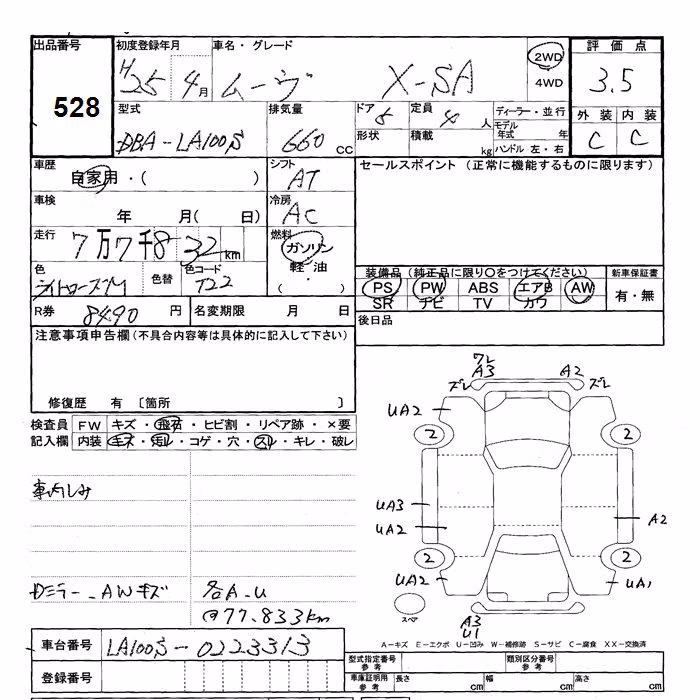 出品番号 初度登録年月 車名・グレード 評価点
528
H25 4月 ムーヴ X-SA 2WD 4WD 3.5
型式 排気量 ドア 定員 ディーラー・並行 外装 内装
DBA-LA100S 660 CC 5 4 人 モデル年式 年 C C
形状 積載 kg ハンドル 左・右
車歴 シフト セールスポイント (正常に機能するものに限ります)
自家用・( ) AT
車検 冷房
年 月( 日) AC
走行 燃料
7万7千832km ガソリン
軽・油
・( )
色 色替 色コード
ライトローズM T22
装備品(純正品に限り○をつけてください) 新車保証書
PS PW ABS エアB AW 有・無
SR ナビ TV カワ
R券 8490 円 名変期限 月 日 後日品
注意事項申告欄(不具合内容等は具体的に記入して下さい)
修復歴 有 〔箇所 〕
検査員 FW キズ・飛石・ヒビ割・リペア跡・×要
記入欄 内装 キズ・汚れ・コゲ・穴・スレ・キレ・破レ
車内しみ
Dミラー、AWキズ 各A.U
@77.833km
ワレ
A3 A2
ズレ ズレ
UA2
2 2
UA3
UA2 A2
2 2
UA2 UA1
スペア
A3
U1
A-キズ E-エクボ U-凹み W-補修跡 S-サビ C-腐食 XX-交換済
車台番号 LA100S-0223313
型式指定番号 参考 類別区分番号 参考
登録番号 車庫証明用 参考 長さ cm 幅 cm 高さ cm